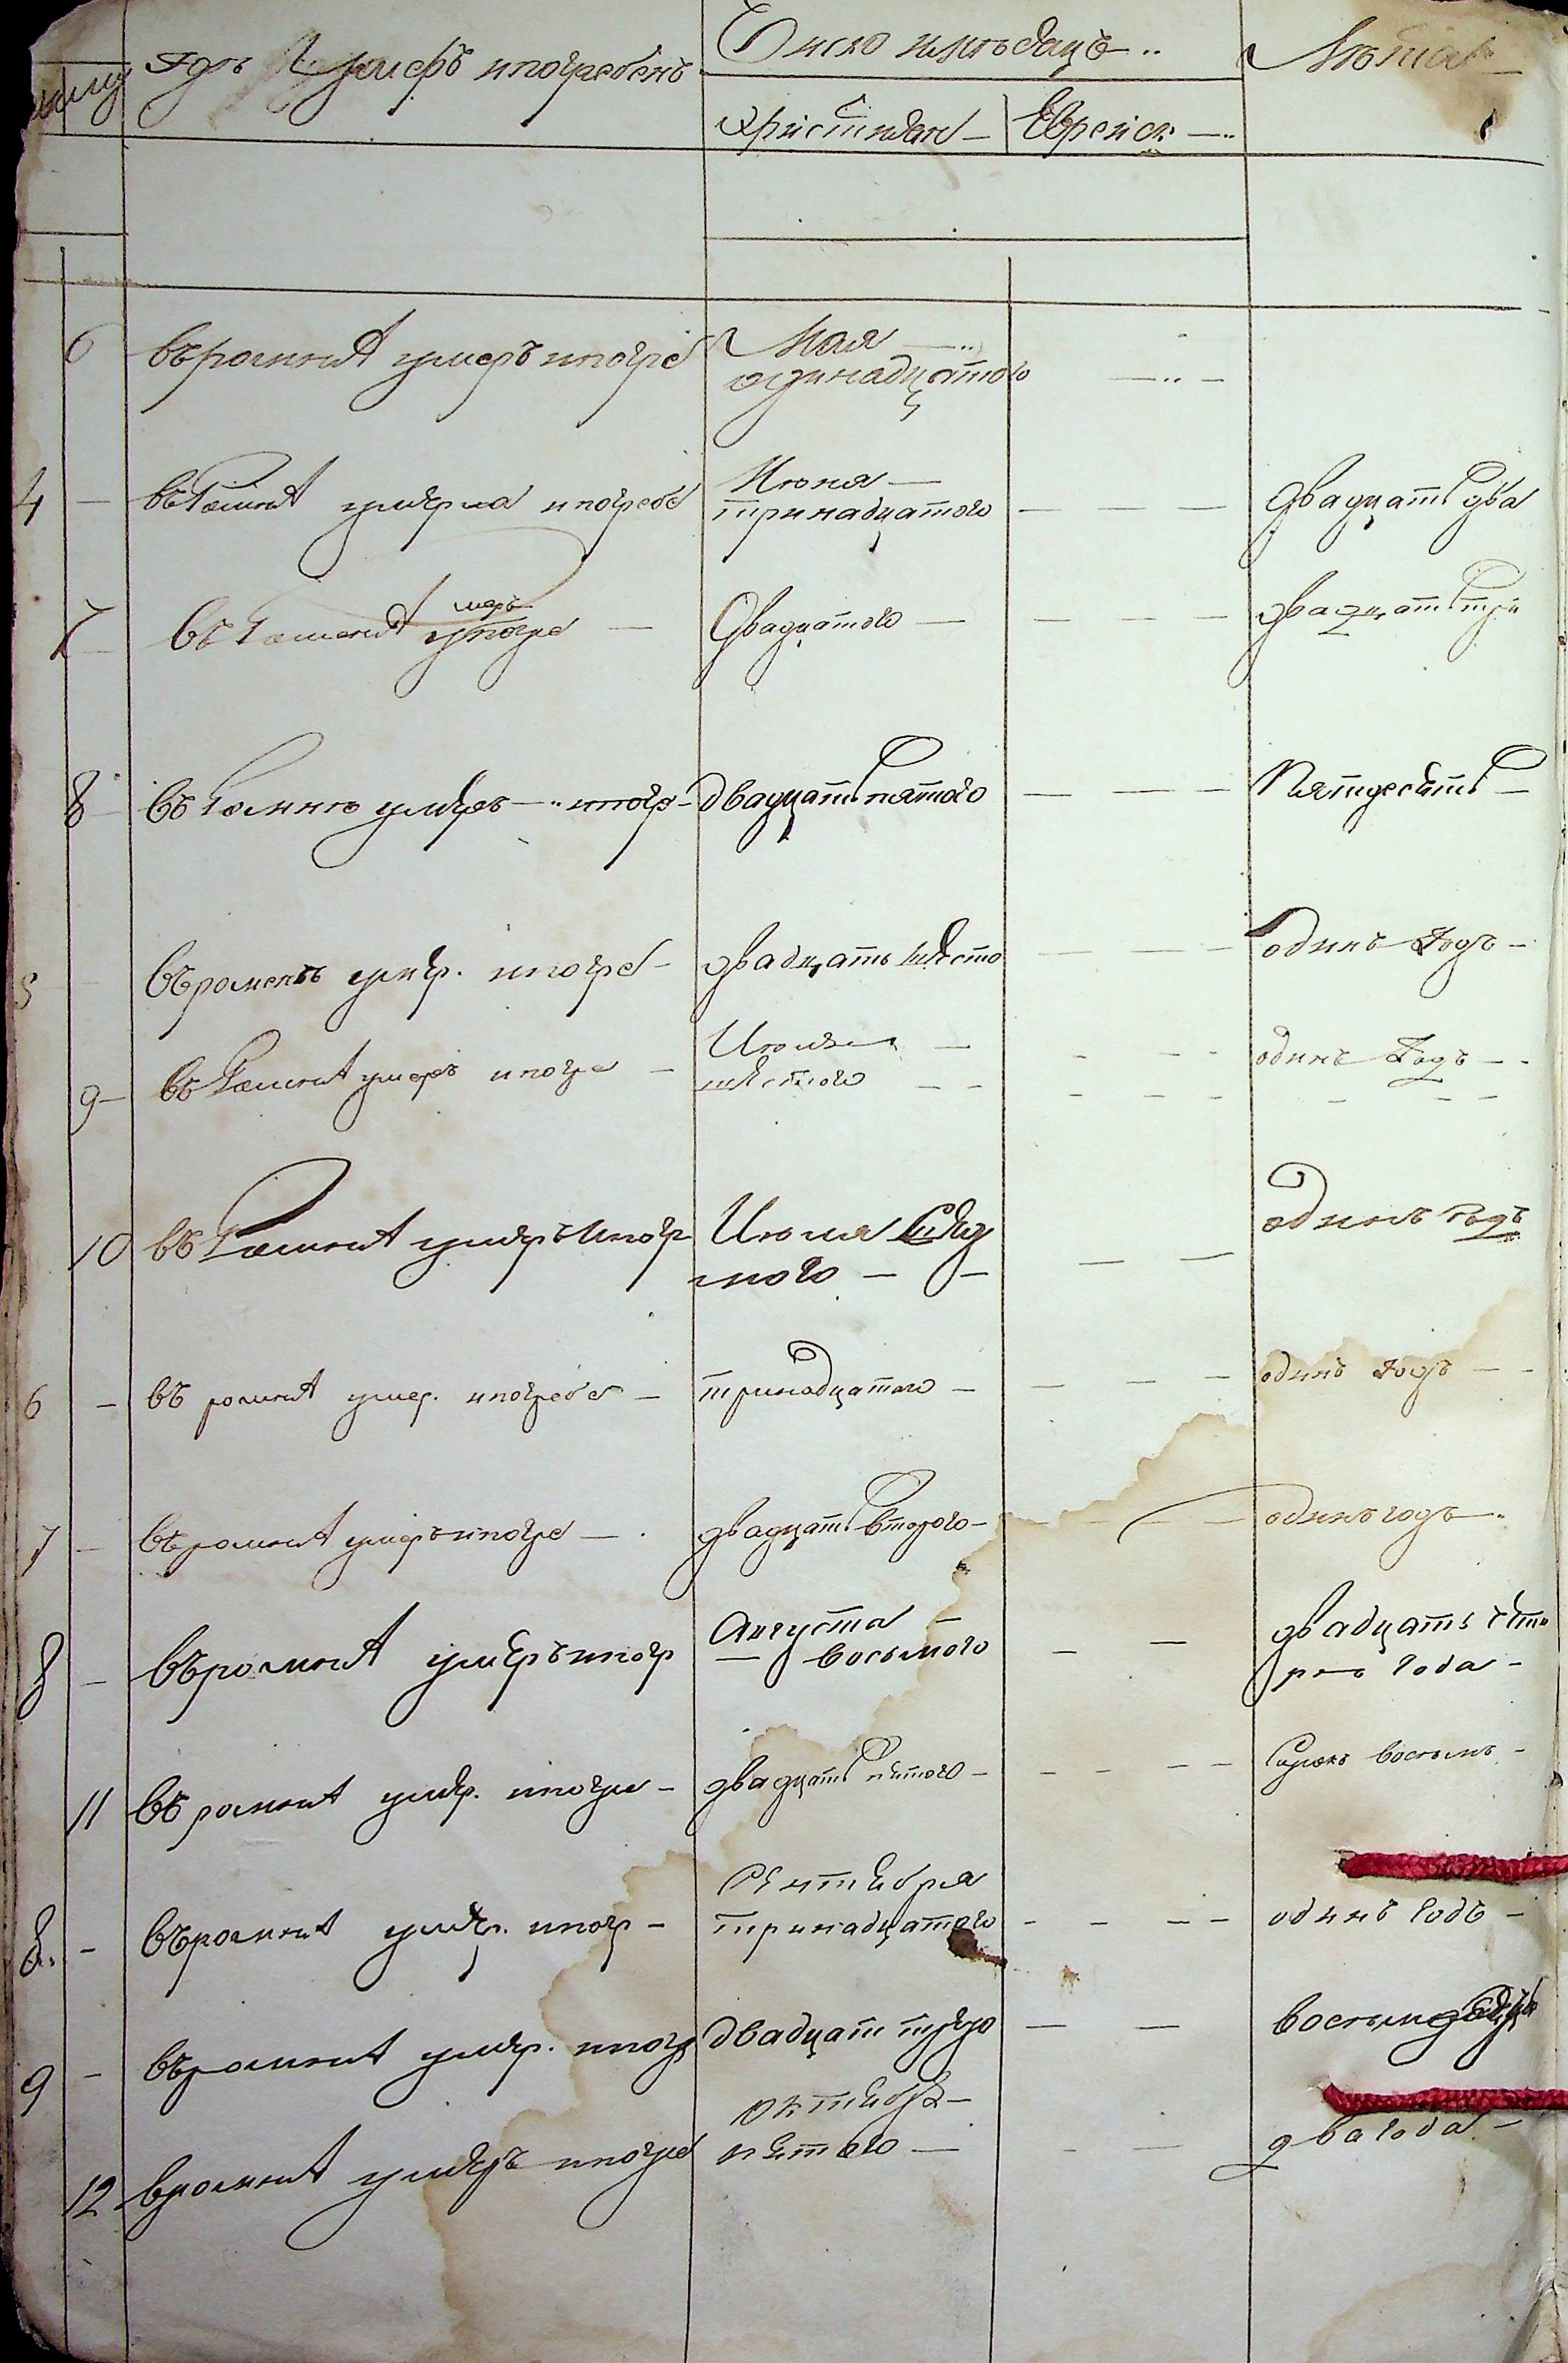 гдѣ умеръ и погребенъ
Число и мѣсяцъ
Лѣта
христиан — Еврейск —
6 въ ромнѣ умеръ и погре
Мая —
одинадцатого
4 — въ Ромнѣ умерла и погребе
Июня —
тринадцатого — — — двадцать два
7 въ Ромнѣ умеръ погре — двадцатого — — — — двадцать три
8 въ Ромнѣ умеръ — и погр — двадцать пятого — — — Пятдесять —
5 въ роменѣ умер. и погре — двадцать шесто — — — одинъ годъ —
9 — въ Ромнѣ умеръ и погре —
Июля —
шестого — — одинъ годъ —
10 въ Ромнѣ умеръ и погр
Июля седмого — — — — одинъ годъ
6 — въ ромнѣ умер. и погребе — тринадцатого — — — — — одинъ годъ — —
7 — въ ромнѣ умеръ и погре — двадцать второго — — — одинъ годъ —
8 — въ ромнѣ умеръ и погр
Августа —
— восьмого — — двадцать четы
ре года —
11 въ ромнѣ умер. и погре — двадцать пятого — — — — — восемь —
8. — въ ромнѣ умер. и погр —
Сентября
тринадцатого — — — — одинъ годъ —
9 — въ ромнѣ умер. и погр двадцат трего — —
12 в ромнѣ умеръ и погре
октября —
пятого — — — два года —